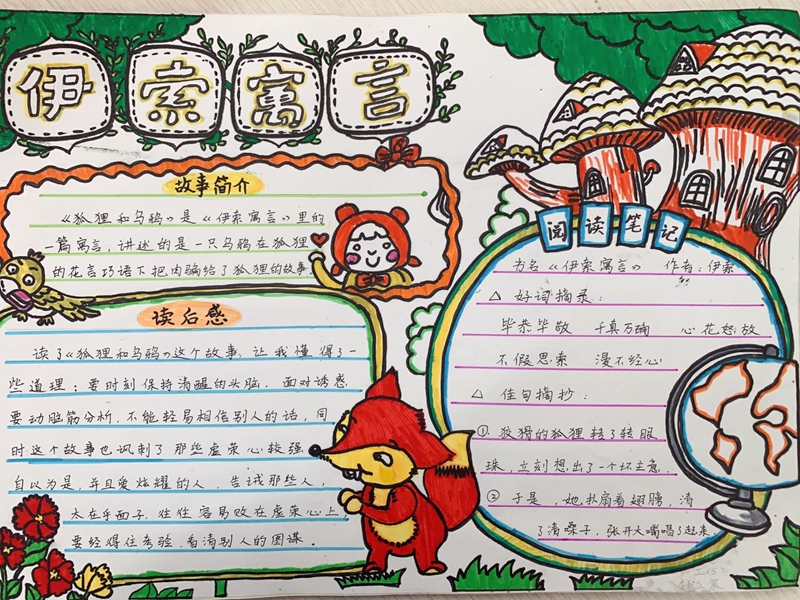 伊索寓言
故事简介
《狐狸和乌鸦》是《伊索寓言》里的
一篇寓言,讲述的是一只乌鸦在狐狸
的花言巧语下把肉骗给了狐狸的故事
读后感
读了《狐狸和乌鸦》这个故事,让我懂得了一
些道理:要时刻保持清醒的头脑,面对诱惑
要动脑筋分析,不能轻易相信别人的话,同
时这个故事也讽刺了那些虚荣心较强
自以为是,并且爱炫耀的人,告诫那些人,
太在乎面子,往往容易败在虚荣心上
要经得住考验,看清别人的图谋。
阅读笔记
书名《伊索寓言》 作者:伊索
△ 好词摘录:
毕恭毕敬 千真万确 心花怒放
不假思索 漫不经心
△ 佳句摘抄:
①狡猾的狐狸转了转眼
珠,立刻想出了一个坏主意.
②于是,她扑扇着翅膀,清
了清嗓子,张开大嘴唱了起来